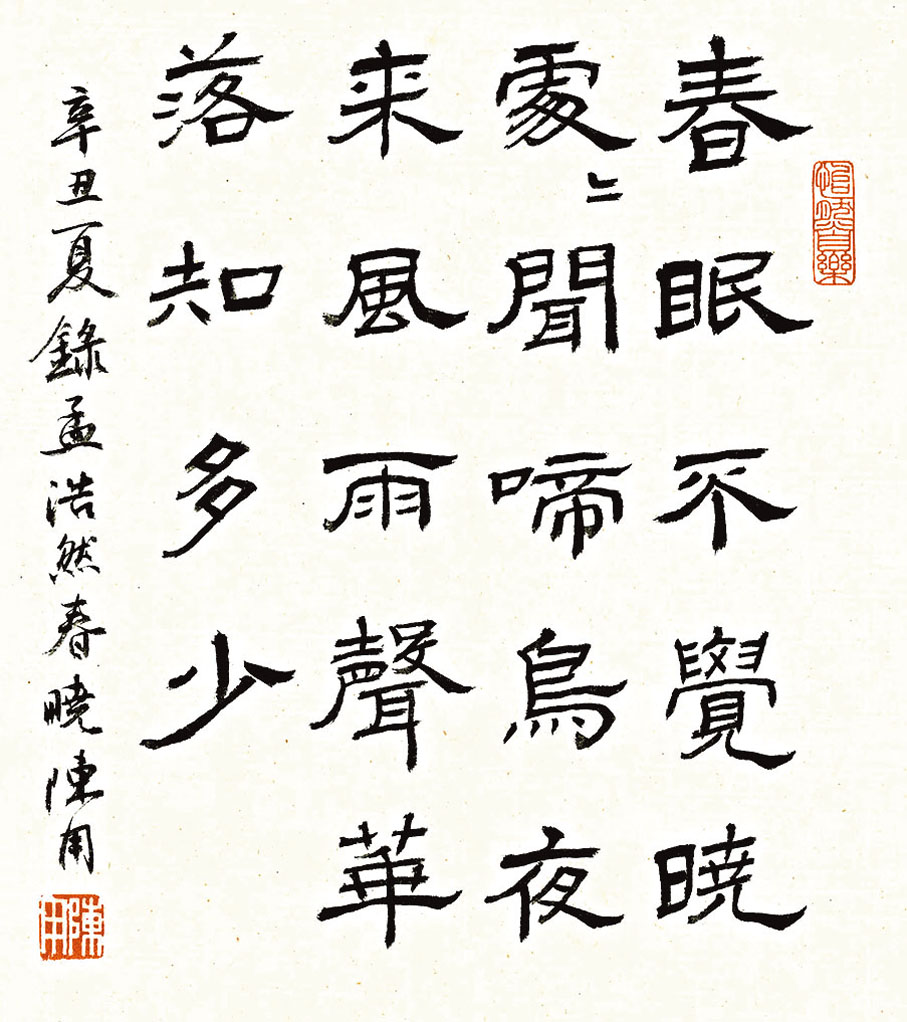 怡然自樂
春眠不覺暁
處〻聞啼鳥夜
来風雨聲華
落知多少
辛丑夏錄孟浩然春暁陳用
陳用